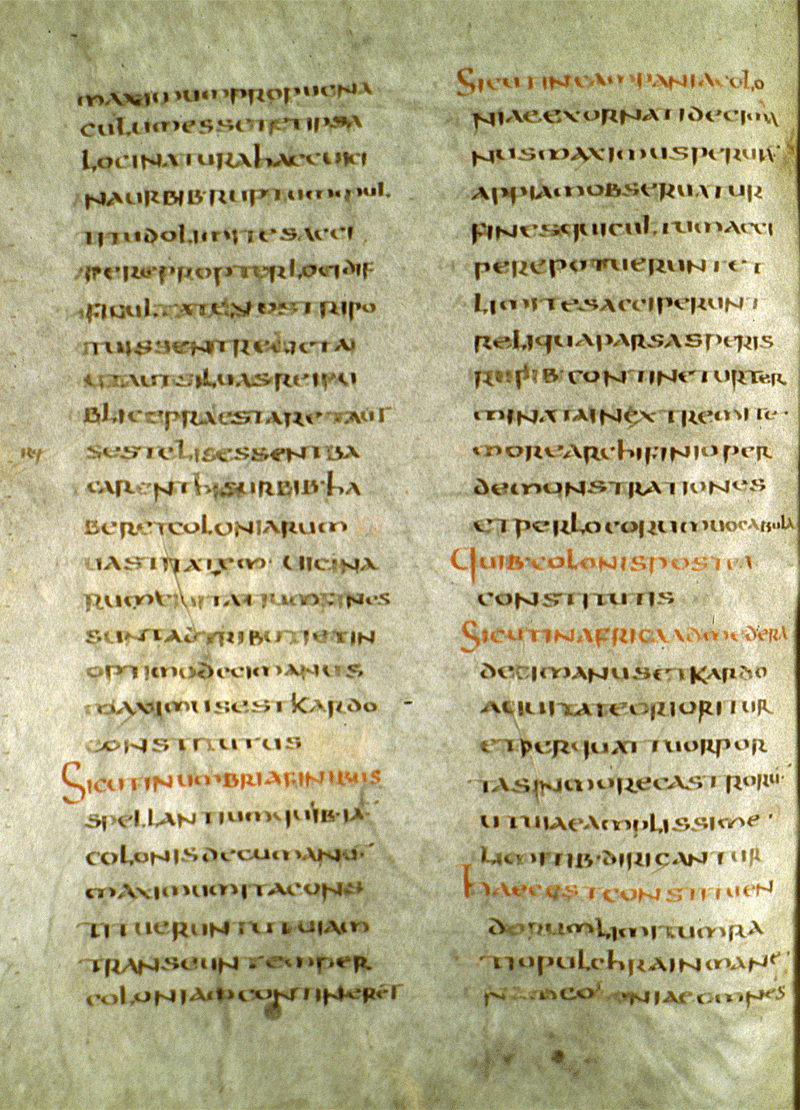 maximumpropugna
culumessetetipsa
locinaturahaecuici
naurbib·
titudolimitesacci
perepropterlocidif
ficul
ut
bliceprae
ba
urbib·ha
beretcoloniarum
uicina
rum fines
suntadtributietin
optimodecimanus
maximusestkardo
constitutus
Sicutinumbriafinibus
spellantiumquib·ia
colonisdecumanu·
maximumitacons
titueruntutuiam
transeuntemper
coloniamcontineret
Sicutincampaniacolo
niaeexornatidecima
nusmaximusperuia
appiamobseruatur
finesquicultumacci
perepotueruntet
limitesacciperunt
reliquaparsasperis
rupib·contineturter
minatainextremite·
morearchifinioper
demonstrationes
etperlocorumuocabula
Quib·colonispostea
constitutis
Sicutinafricaadmedera
decimanusetkardo
aciuitateorioritur
etperquattuorpor
tasinmorecastroru·
utuiaeamplissime·
limitib·diricantur
haecestconstituen
dorumlimitumra
tiopulchrainmane
coloniaeomnes